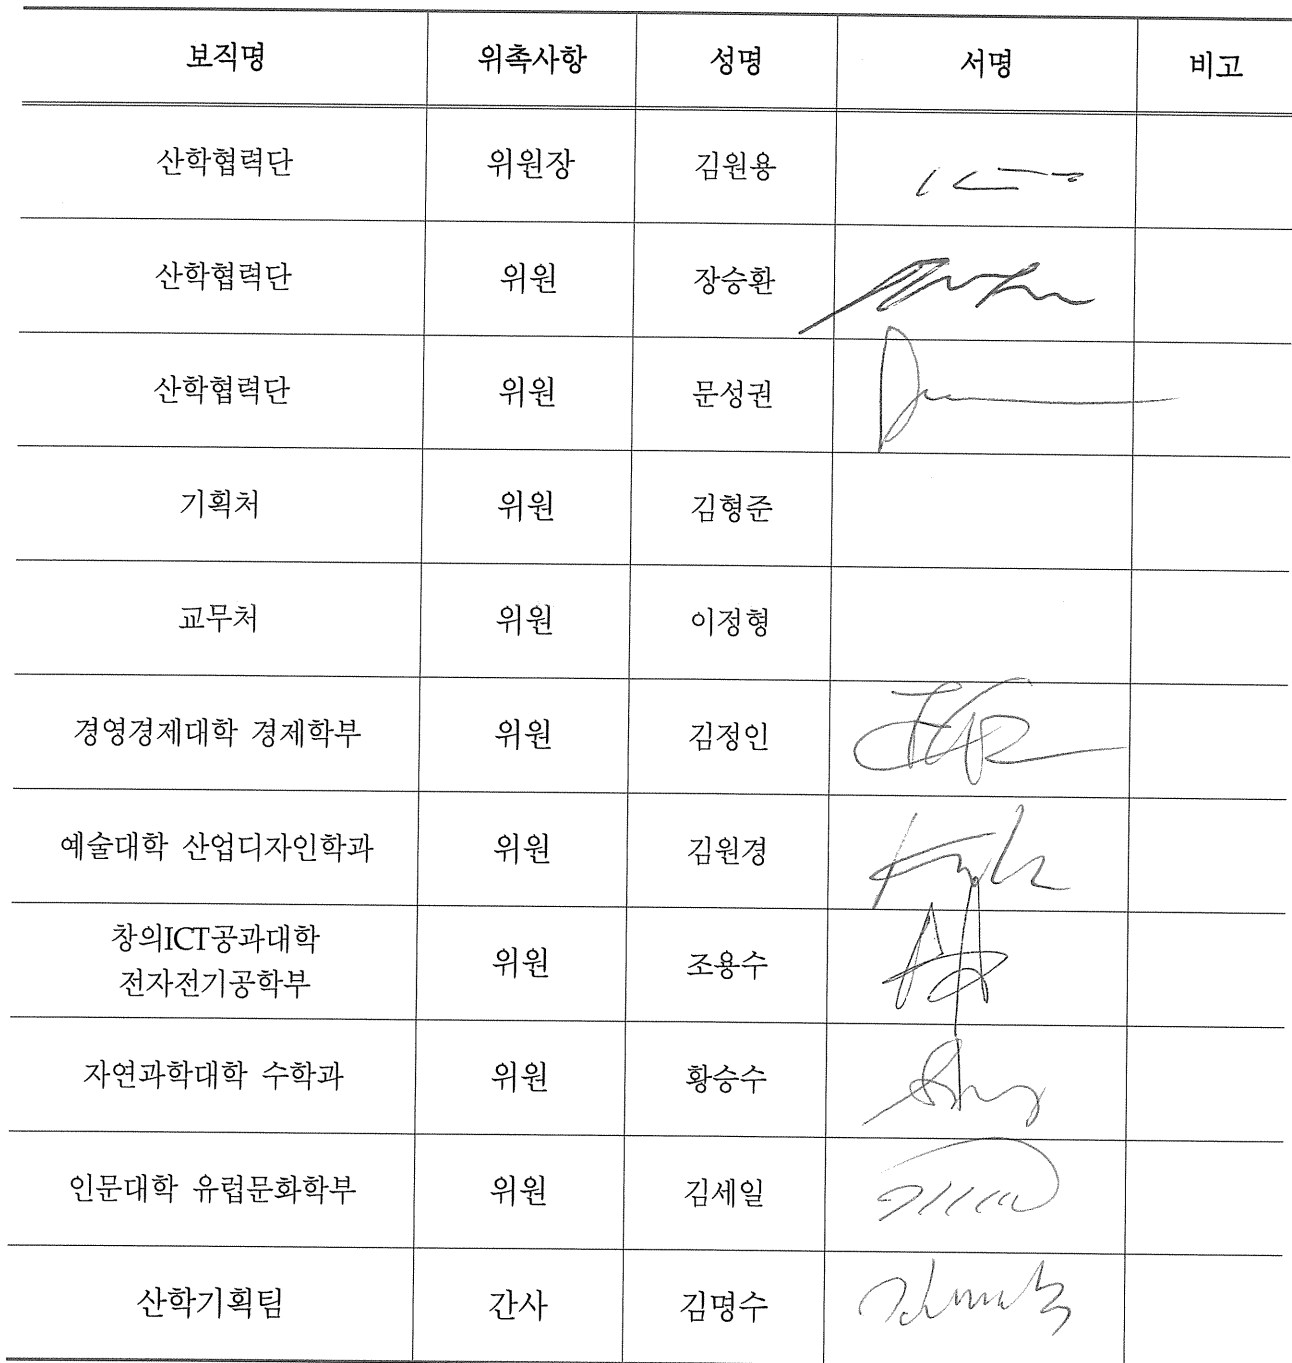 보직명 위촉사항 성명 서명 비고
산학협력단 위원장 김원용
산학협력단 위원 장승환
산학협력단 위원 문성권
기획처 위원 김형준
교무처 위원 이정형
경영경제대학 경제학부 위원 김정인
예술대학 산업디자인학과 위원 김원경
창의ICT공과대학
전자전기공학부 위원 조용수
자연과학대학 수학과 위원 황승수
인문대학 유럽문화학부 위원 김세일
산학기획팀 간사 김명수